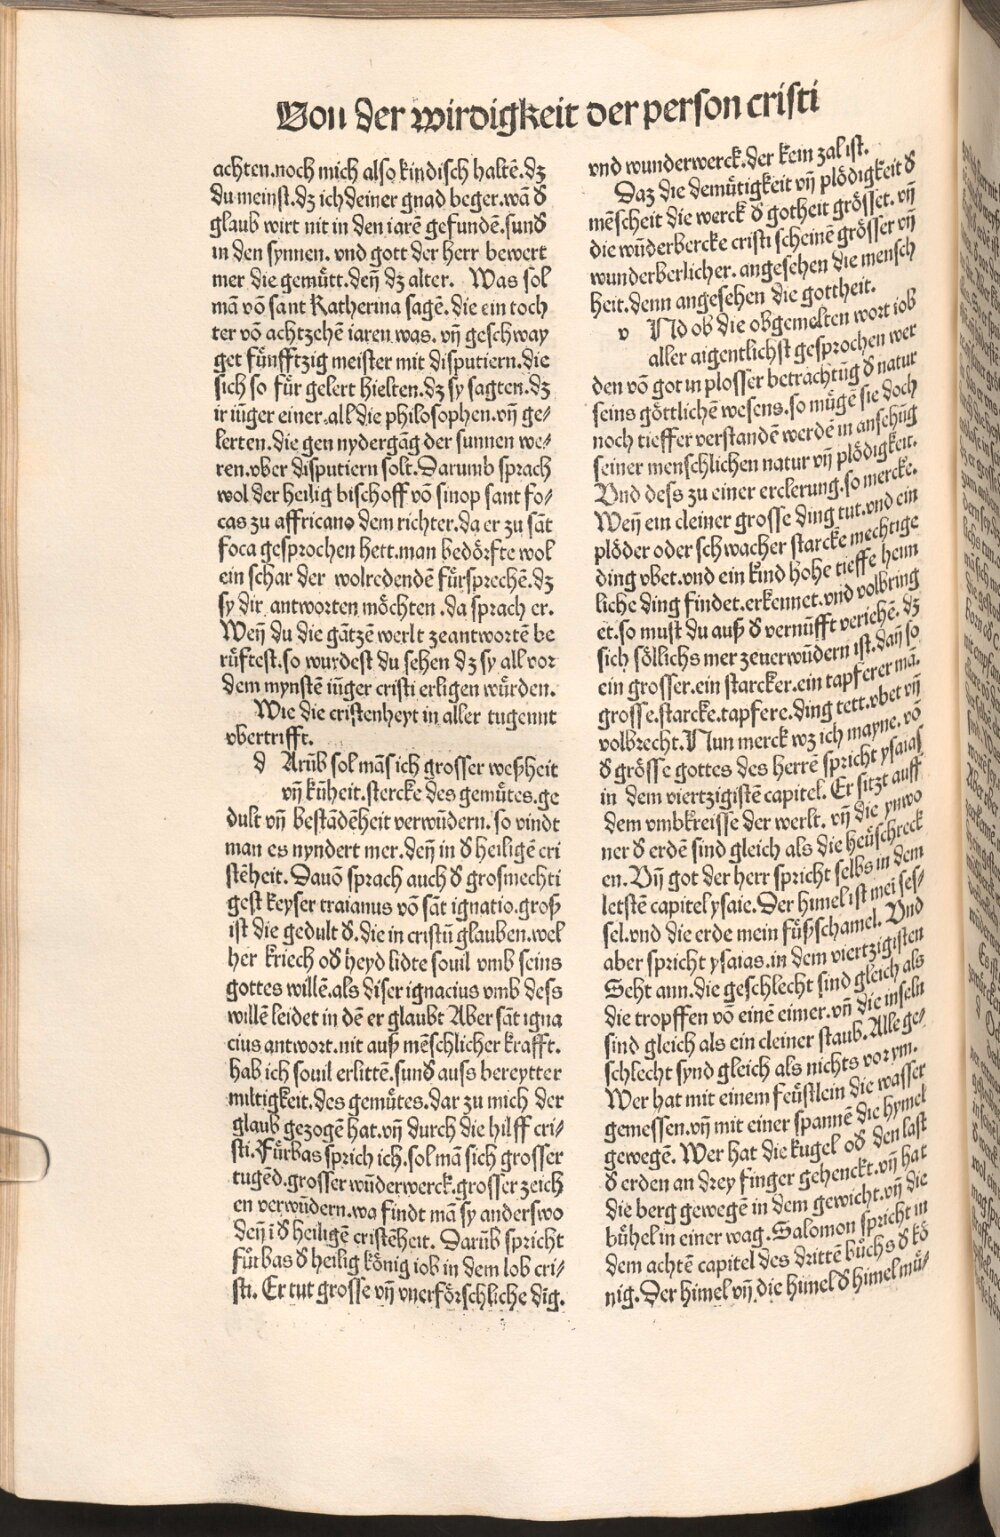 Von der wirdigkeit der person cristi
achten.noch mich also kindisch haltē.dz
du meinst.dz ich deiner gnad beger.wā d̕
glaub wirt nit in den iarē gefundē.sund̕
in den synnen. vnd gott der herr bewert
mer die gemuͤtt.deñ dz alter. Was sol
mā vō sant Katherina sagē.die ein toch
ter vō achtzehē iaren was. vñ geschway
get fuͤnfftzig meister mit disputiern.die
sich so fuͤr gelert hielten.dz sy sagten.dz
ir iūger einer.all die philosophen.vñ ge⸗
lerten.die gen nydergāg der sunnen we⸗
ren.vber disputiern solt.Darumb sprach
wol der heilig bischoff vō sinop sant fo⸗
cas zu affricano dem richter.da er zu sāt
foca gesprochen hett.man bedoͤrfte wol
ein schar der wolredendē fuͤrsprechē.dz
sy dir antworten moͤchten .da sprach er.
Weñ du die gātzē werlt zeantwortē be
ruͤftest.so wurdest du sehen dz sy all vor
dem mynstē iūger cristi erligen wuͤrden.
Wie die cristenheyt in aller tugennt
vbertrifft.
d Arūb sol mā sich grosser weßheit
vñ kūheit.stercke des gemuͤtes.ge
dult vñ bestādēheit verwūdern. so vindt
man es nyndert mer.deñ in d̕ heiligē cri
stēheit. Dauō sprach auch d̕ grosmechti
gest keyser traianus vō sāt ignatio.groß
ist die gedult d̕.die in cristū glauben.wel
her kriech od̕ heyd lidte souil vmb seins
gottes willē.als diser ignacius vmb dess
willē leidet in dē er glaubt Aber sāt igna
cius antwort.nit auß mēschlicher krafft.
hab ich souil erlittē.sund̕ auss bereytter
miltigkeit.des gemuͤtes.dar zu mich der
glaub gezogē hat.vñ durch die hilff cri⸗
sti.Fuͤrbas sprich ich.sol mā sich grosser
tugēd.grosser wūderwerck.grosser zeich
en verwūdern.wa findt mā sy anderswo
deñ ī d̕ heiligē cristēheit. Darūb spricht
fuͤrbas d̕ heilig koͤnig iob in dem lob cri⸗
sti. Er tut grosse vñ vnerfoͤrschliche dig.
vnd wunderwerck.der kein zal ist.
Daz die demuͤtigkeit vñ ploͤdigkeit d̕
mēscheit die werck d̕ gotheit groͤsset. vñ
die wūderbercke cristi scheinē groͤsser vñ
wunderberlicher. angesehen die mensch
heit.denn angesehen die gottheit.
v Nd ob die obgemelten wort iob
aller aigentlichst gesprochen wer
den vō got in plosser betrachtūg d̕ natur
seins goͤttlichē wesens.so muͤgē sie doch
noch tieffer verstandē werdē in ansehūg
seiner menschlichen natur vñ ploͤdigkeit.
Vnd dess zu einer erclerung.so mercke.
Weñ ein cleiner grosse ding tut.vnd ein
ploͤder oder schwacher starcke mechtige
ding vbet.vnd ein kind hohe tieffe heim
liche ding findet.erkennet.vnd volbring
et.so must du auß d̕ vernūfft veriehē. dz
sich soͤllichs mer zeuerwūdern ist.dañ so
ein grosser.ein starcker.ein tapferer mā.
grosse.starcke.tapfere.ding tett.vbet vñ
volbrecht.Nun merck wz ich mayne. vō
d̕ groͤsse gottes des herrē spricht ysaias
in dem viertzigistē capitel. Er sitzt auff
dem vmbkreisse der werlt. vñ die ynwo
ner d̕ erdē sind gleich als die heuͤschreck
en.Vñ got der herr spricht selbs in dem
letstē capitel ysaie.Der himel ist mei ses⸗
sel.vnd die erde mein fuͤßschamel. Vnd
aber spricht ysaias.in dem viertzigisten
Seht ann.die geschlecht sind gleich als
die tropffen vō einē eimer.vñ die inseln
sind gleich als ein cleiner staub.Alle ge⸗
schlecht synd gleich als nichts vor ym.
Wer hat mit einem feuͤstlein die wasser
gemessen.vñ mit einer spannē die hymel
gewegē. Wer hat die kugel od̕ den last
d̕ erden an drey finger gehenckt.vñ hat
die berg gewegē in dem gewicht.vñ die
buͤhel in einer wag.Salomon spricht in
dem achtē capitel des drittē buͤchs d̕ koͤ
nig.Der himel vñ die himel d̕ himel muͤ⸗